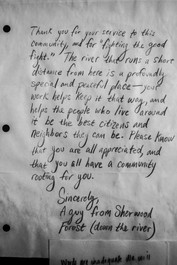 Thank you for your service to this
community, and for "fighting the good
fight." The river that runs a short
distance from here is a profoundly
special and peaceful place — your
work helps keep it that way, and
helps the people who live around
it be the best citizens and
neighbors they can be. Please know
that you are all appreciated, and
that you all have a community
rooting for you.
Sincerely,
A guy from Sherwood
Forest (down the river)